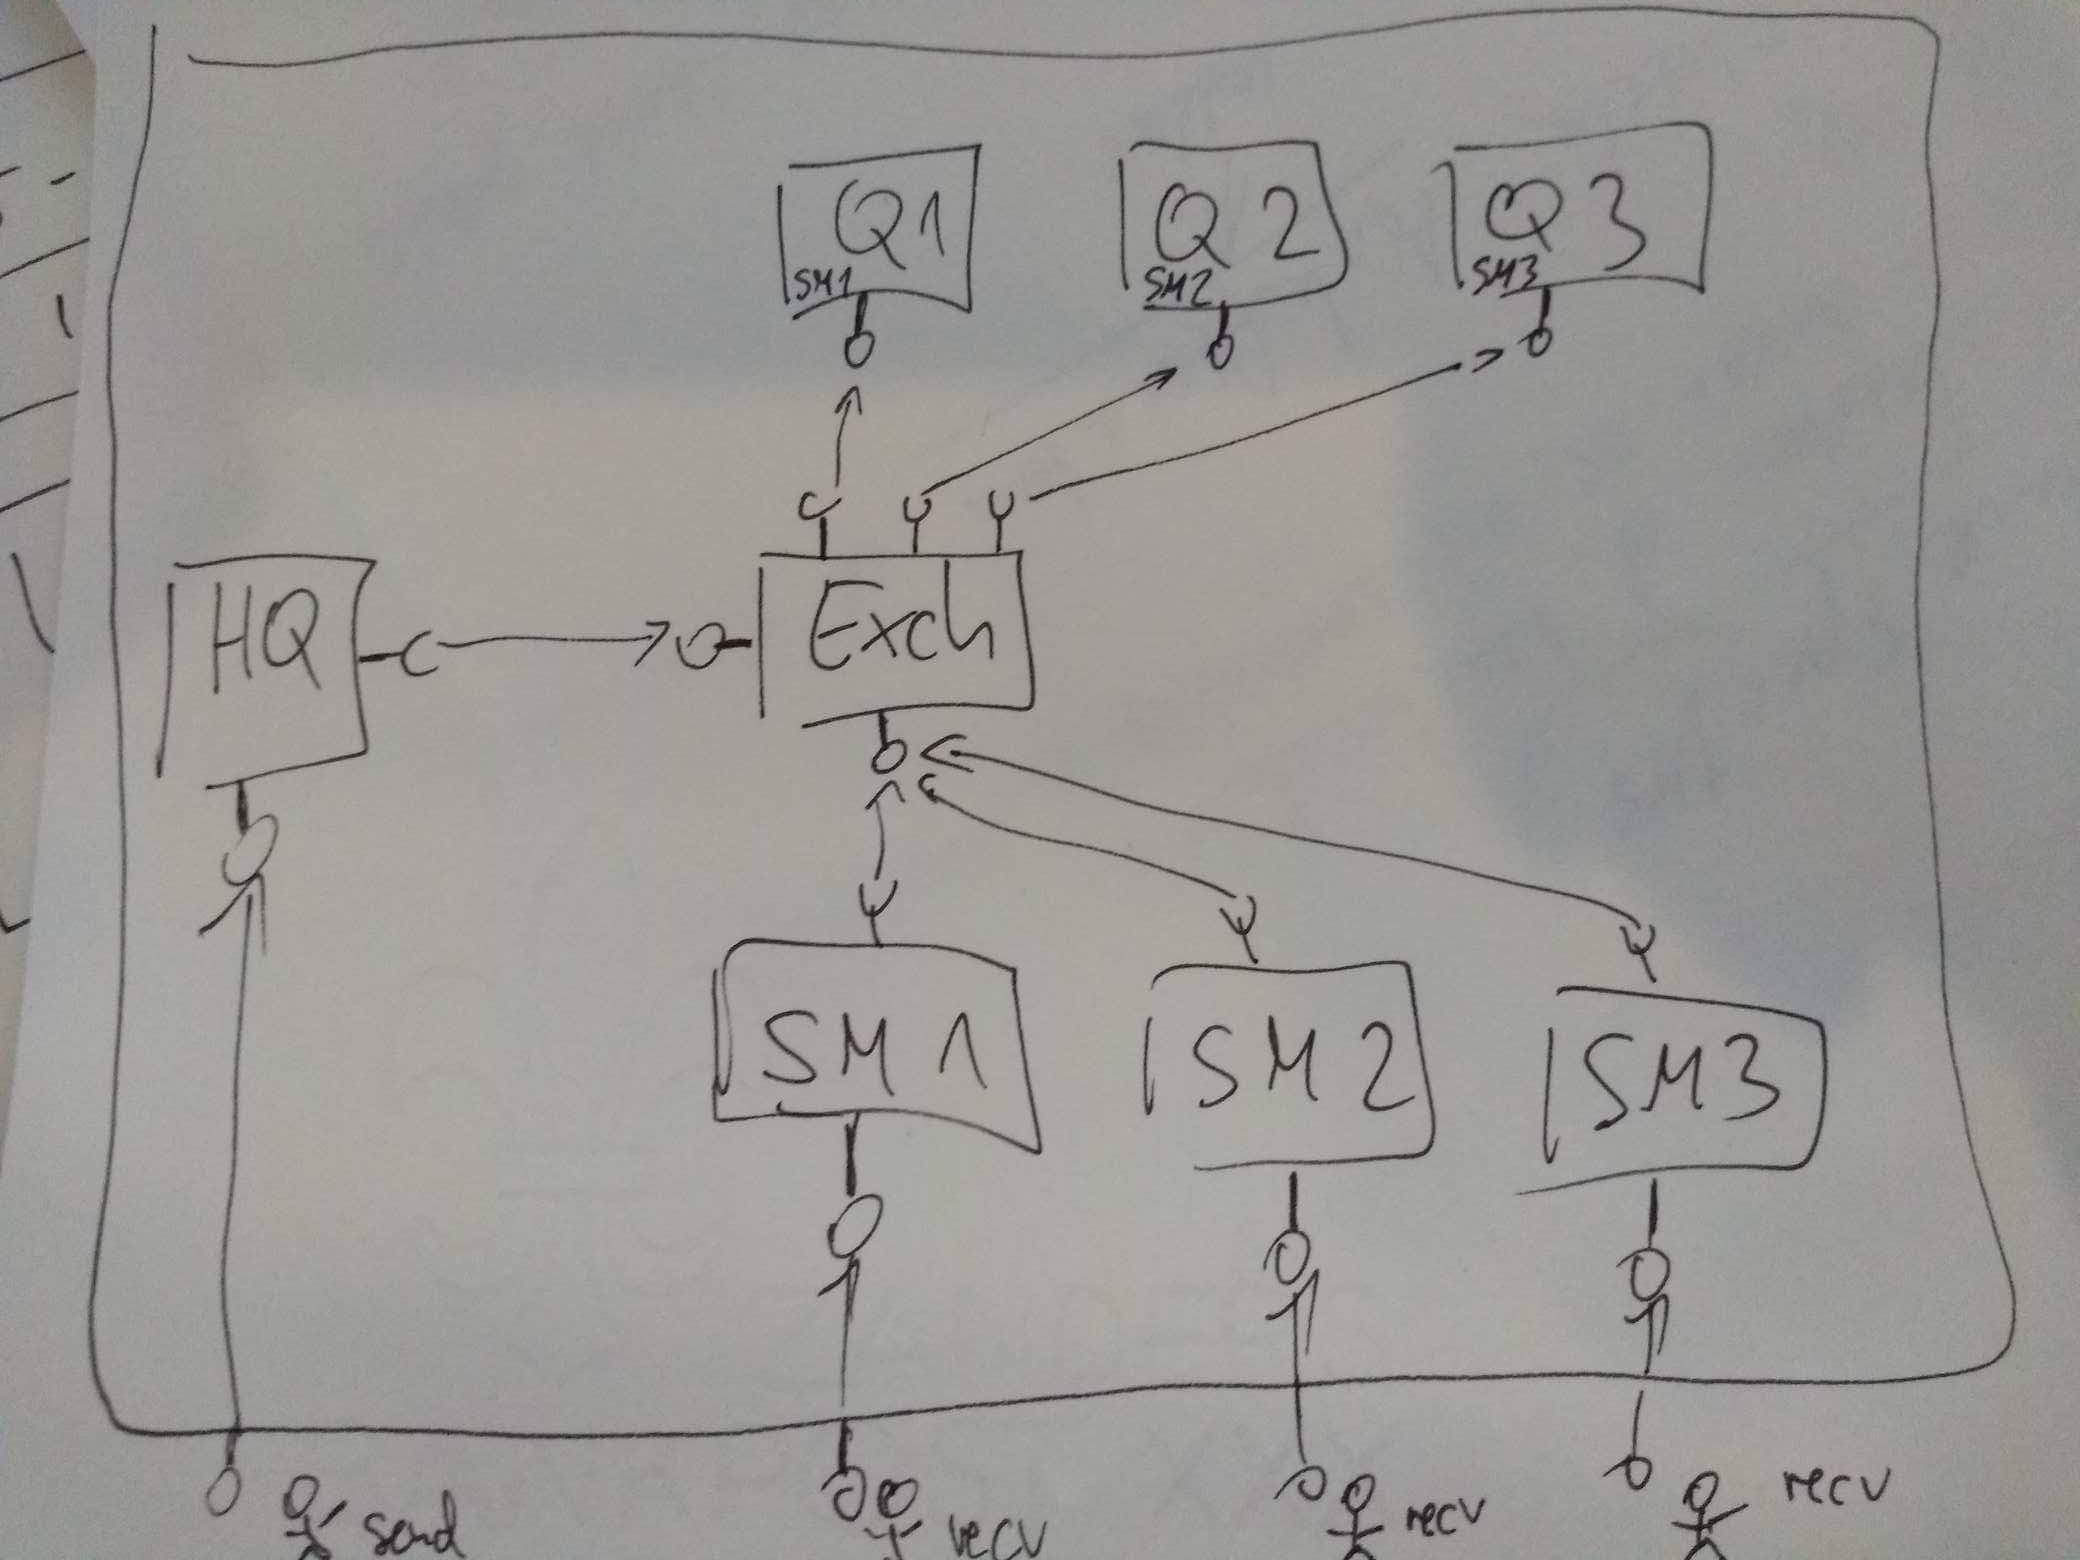 Q1
SM1
Q2
SM2
Q3
SM3
HQ
Exch
SM1
SM2
SM3
send
recv
recv
recv